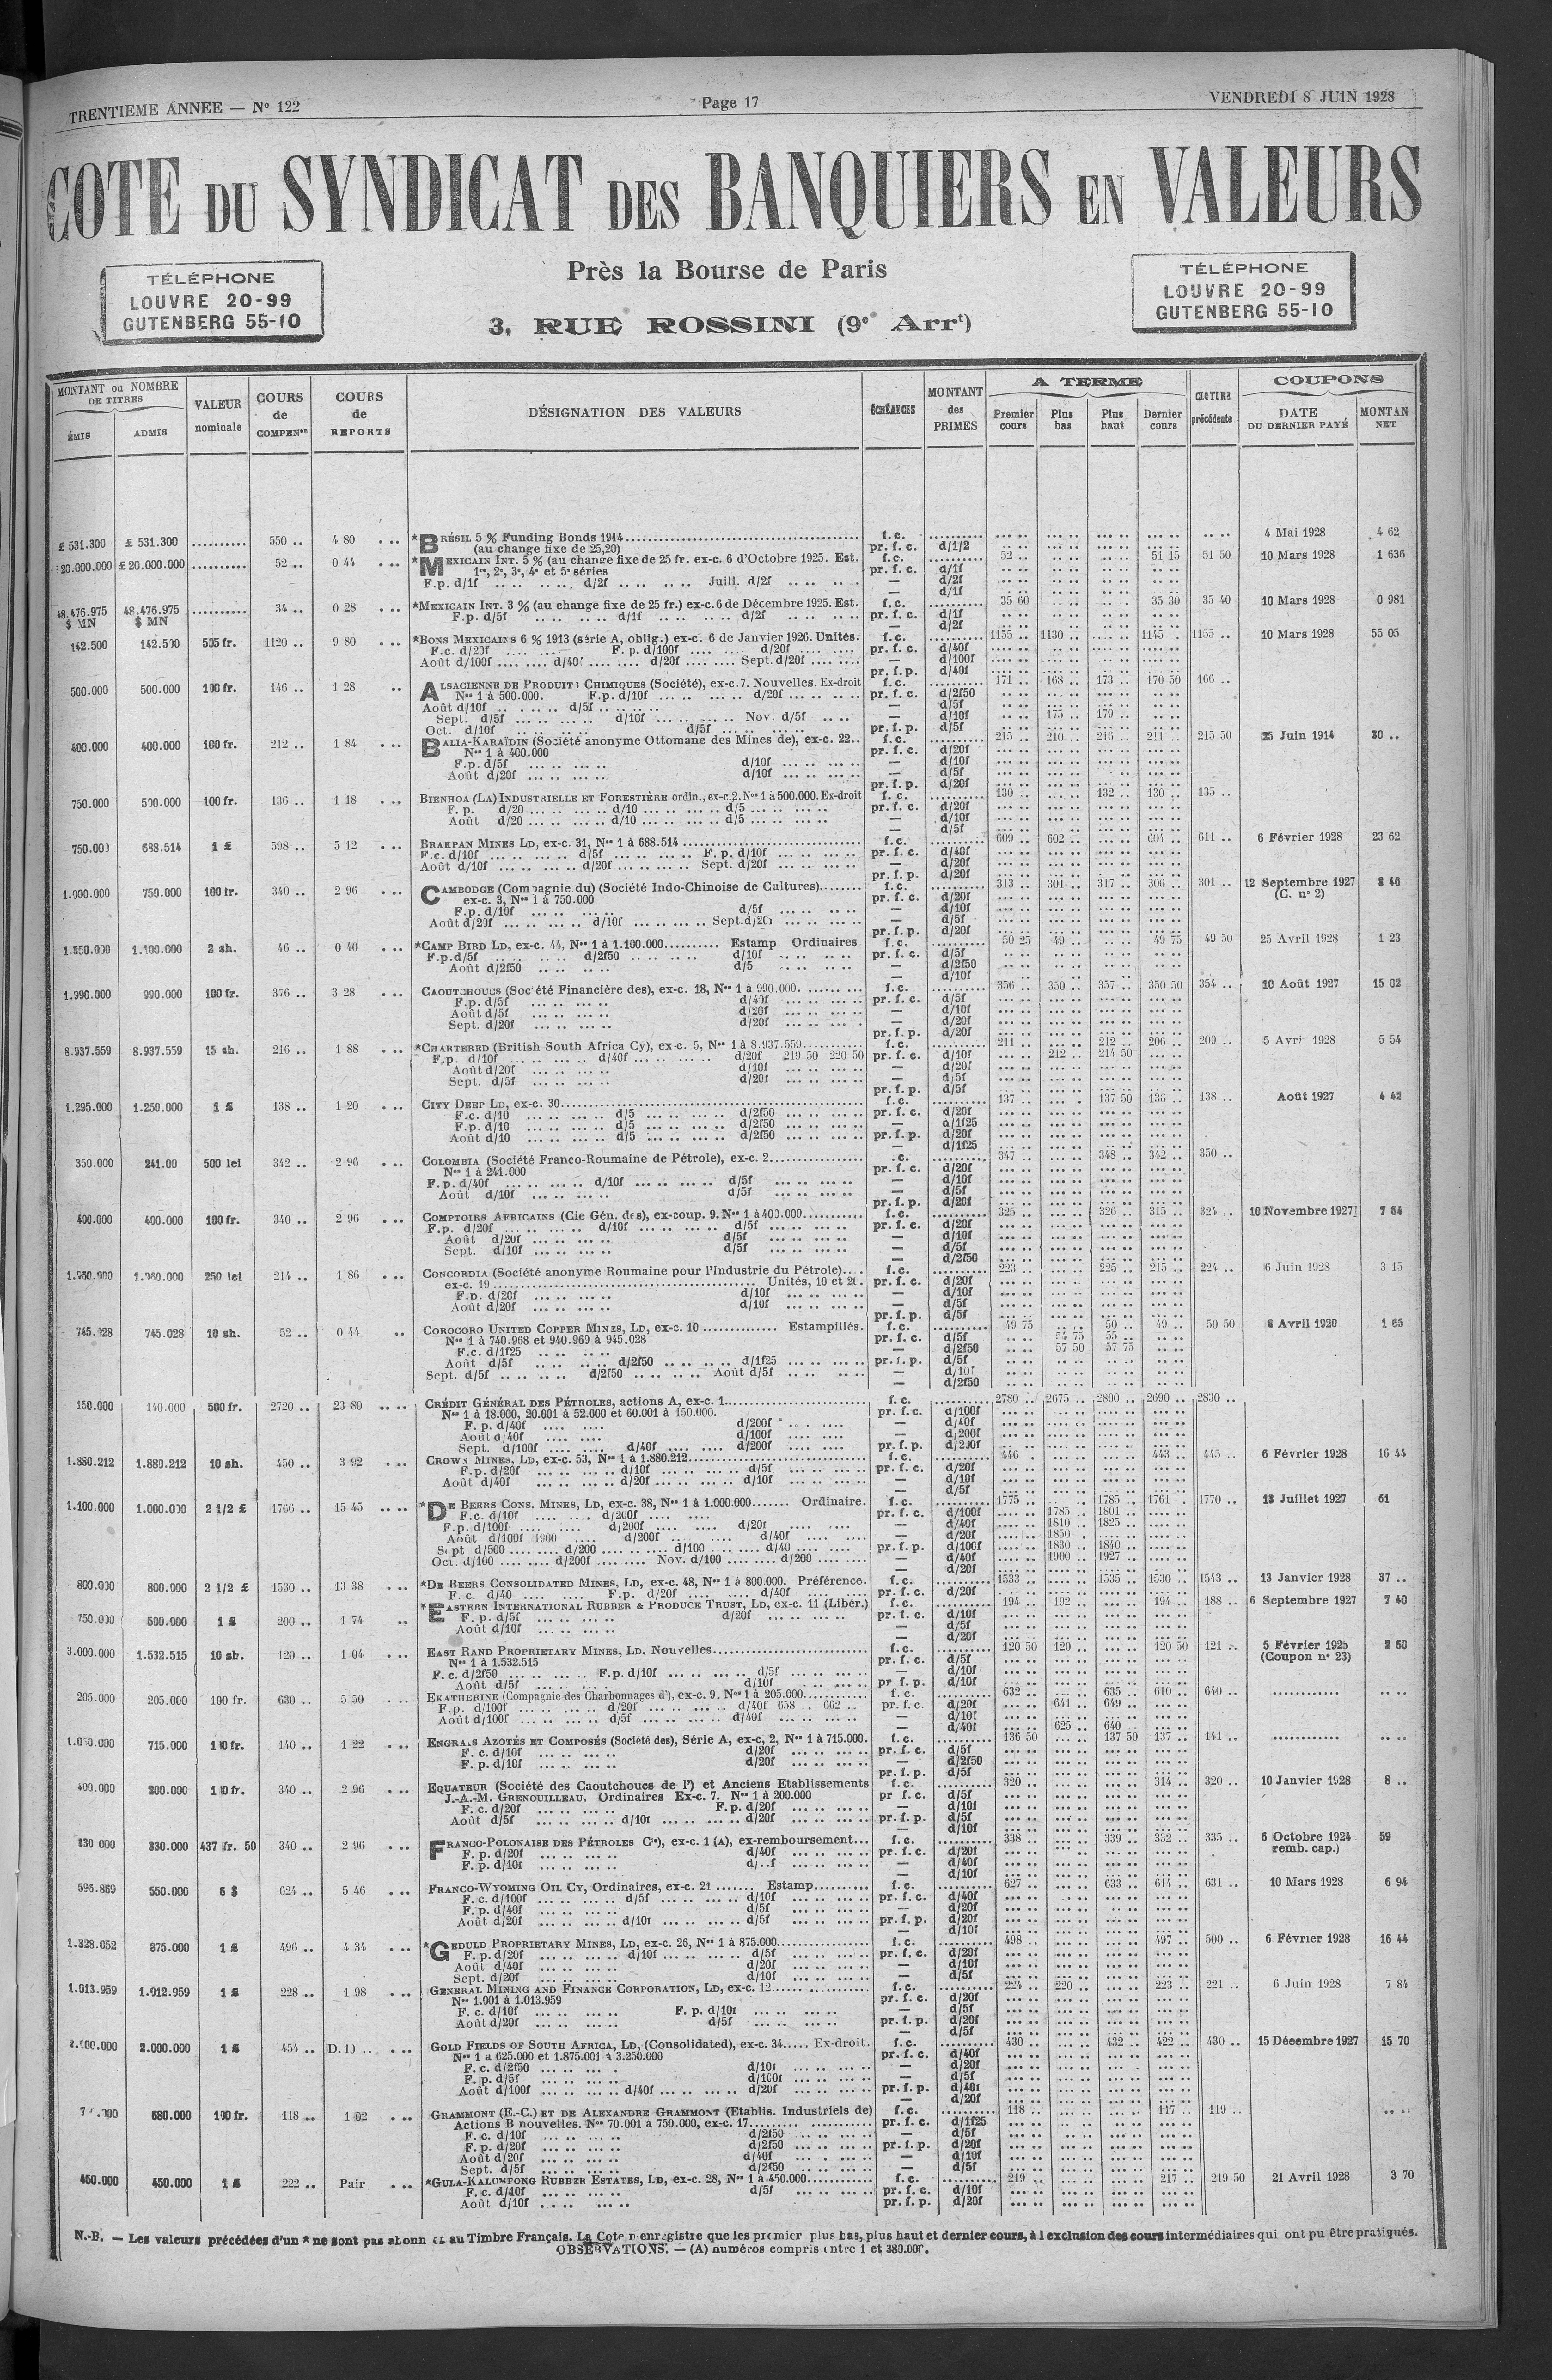 TRENTIEME ANNEE — N° 122
Page 17
VENDREDI 8 JUIN 1928
COTE DU SYNDICAT DES BANQUIERS EN VALEURS
TÉLÉPHONE
LOUVRE 20-99
GUTENBERG 55-10
Près la Bourse de Paris
3, RUE ROSSINI (9e Arrt)
TÉLÉPHONE
LOUVRE 20-99
GUTENBERG 55-10
MONTANT ou NOMBRE DE TITRES
ÉMIS ADMIS
VALEUR nominale
COURS de COMPENon
COURS de REPORTS
DÉSIGNATION DES VALEURS
ÉCHÉANCES
MONTANT des PRIMES
A TERME
Premier cours Plus bas Plus haut Dernier cours
précédente
COUPONS
DATE DU DERNIER PAYÉ
MONTAN NET
£ 531.300 £ 531.300 .......... 550 .. 4 80 *BRÉSIL 5 % Funding Bonds 1914 f.c. 4 Mai 1928 4 62
(au change fixe de 25,20) pr. f. c. d/1/2
£ 20.000.000 .......... 52 .. 0 44 *MEXICAIN INT. 5 % (au change fixe de 25 fr. ex-c. 6 d'Octobre 1925. Est. f.c. 52 .. 51 15 51 50 10 Mars 1928 1 636
1re, 2e, 3e, 4e et 5e séries pr. f. c. d/1f
F.p. d/1f d/2f Juill. d/2f — d/2f
— d/1f
48.476.975 $ MN 48.476.975 $ MN .......... 34 .. 0 28 *MEXICAIN INT. 3 % (au change fixe de 25 fr.) ex-c. 6 de Décembre 1925. Est. f.c. 35 60 35 30 35 40 10 Mars 1928 0 981
F.p. d/5f d/1f d/2f pr. f. c. d/1f
— d/2f
142.500 142.500 505 fr. 1120 .. 9 80 *BONS MEXICAINS 6 % 1913 (série A, oblig.) ex-c. 6 de Janvier 1926. Unités. f.c. 1155 .. 1130 .. 1145 . 1155 .. 10 Mars 1928 55 05
F.c. d/20f F. p. d/100f d/20f pr. f. c. d/40f
Août d/100f d/40f d/20f Sept. d/20f — d/100f
pr. f. p. d/40f
500.000 500.000 100 fr. 146 .. 1 28 ALSACIENNE DE PRODUITS CHIMIQUES (Société), ex-c. 7. Nouvelles. Ex-droit f.c. 171 .. 168 .. 173 .. 170 50 166 ..
Nos 1 à 500.000. F.p. d/10f d/20f pr. f. c. d/2f50
Août d/10f d/5f — d/5f
Sept. d/5f d/10f Nov. d/5f — d/10f 175 .. 179 ..
Oct. d/10f d/5f pr. f. p. d/5f
400.000 400.000 100 fr. 212 .. 1 84 BALIA-KARAÏDIN (Société anonyme Ottomane des Mines de), ex-c. 22.. f.c. 215 .. 210 .. 216 .. 211 .. 215 50 25 Juin 1914 30 ..
Nos 1 à 400.000 pr. f. c. d/20f
F.p. d/5f d/10f — d/10f
Août d/20f d/10f — d/5f
pr. f. p. d/20f
750.000 500.000 100 fr. 136 .. 1 18 BIENHOA (LA) INDUSTRIELLE ET FORESTIÈRE ordin., ex-c. 2. Nos 1 à 500.000. Ex-droit f. c. 130 .. 132 .. 130 .. 135 ..
F. p. d/20 d/10 d/5 pr. f. c. d/20f
Août d/20 d/10 d/5 — d/10f
— d/5f
750.000 688.514 1 £ 598 .. 5 12 BRAKPAN MINES LD, ex-c. 31, Nos 1 à 688.514 f.c. 609 .. 602 .. 604 .. 611 .. 6 Février 1928 23 62
F.c. d/10f d/5f F. p. d/10f pr. f. c. d/40f
Août d/10f d/20f Sept. d/20f — d/20f
pr. f. p. d/20f
1.000.000 750.000 100 fr. 340 .. 2 96 CAMBODGE (Compagnie du) (Société Indo-Chinoise de Cultures) f.c. 313 .. 301 .. 317 .. 306 .. 301 .. 12 Septembre 1927 8 46
ex-c. 3, Nos 1 à 750.000 pr. f. c. d/20f (C. n° 2)
F.p. d/10f d/5f — d/10f
Août d/20f d/10f Sept. d/20f — d/5f
pr. f. p. d/20f
1.100.000 2 sh. 46 .. 0 40 *CAMP BIRD LD, ex-c. 44, Nos 1 à 1.100.000 Estamp Ordinaires f.c. 50 25 49 .. 49 75 49 50 25 Avril 1928 1 23
F.p. d/5f d/2f50 d/10f pr. f. c. d/5f
Août d/2f50 d/5 — d/2f50
— d/10f
1.990.000 990.000 100 fr. 376 .. 3 28 CAOUTCHOUCS (Société Financière des), ex-c. 18, Nos 1 à 990.000. f.c. 356 .. 350 .. 357 .. 350 50 354 .. 10 Août 1927 15 02
F.p. d/5f d/40f pr. f. c. d/5f
Août d/5f d/20f — d/10f
Sept. d/20f d/20f — d/20f
pr. f. p. d/20f
8.937.559 8.937.559 15 sh. 216 .. 1 88 *CHARTERED (British South Africa Cy), ex-c. 5, Nos 1 à 8.937.559 f.c. 211 .. 212 .. 206 .. 209 .. 5 Avri 1928 5 54
F.p. d/10f d/40f d/20f 219 50 220 50 pr. f. c. d/10f 212 .. 214 50
Août d/20f d/10f — d/20f
Sept. d/5f d/20f — d/5f
pr. f. p. d/5f
1.295.000 1.250.000 1 £ 138 .. 1 20 CITY DEEP LD, ex-c. 30 f.c. 137 .. 137 50 136 .. 138 .. Août 1927 4 42
F.c. d/10 d/5 d/2f50 pr. f. c. d/20f
F.p. d/10 d/5 d/2f50 — d/1f25
Août d/10 d/5 d/2f50 pr. f. p. d/20f
— d/1f25
350.000 241.00 500 lei 342 .. 2 96 COLOMBIA (Société Franco-Roumaine de Pétrole), ex-c. 2 .c. 347 .. 348 .. 342 .. 350 ..
Nos 1 à 241.000 pr. f. c. d/20f
F.p. d/40f d/10f d/5f — d/10f
Août d/10f d/5f — d/5f
pr. f. p. d/20f
400.000 400.000 100 fr. 340 .. 2 96 COMPTOIRS AFRICAINS (Cie Gén. des), ex-coup. 9. Nos 1 à 400.000 f.c. 325 .. 326 .. 315 .. 324 .. 10 Novembre 1927 7 64
F.p. d/20f d/10f d/5f pr. f. c. d/20f
Août d/20f d/5f — d/10f
Sept. d/10f d/5f — d/5f
— d/2f50
1.960.000 250 lei 214 .. 1 86 CONCORDIA (Société anonyme Roumaine pour l'Industrie du Pétrole) f.c. 223 .. 225 .. 215 .. 224 .. 6 Juin 1928 3 15
ex-c. 19 Unités, 10 et 20. pr. f. c. d/20f
F.p. d/20f d/10f — d/10f
Août d/20f d/10f — d/5f
pr. f. p. d/5f
745.028 745.028 10 sh. 52 .. 0 44 COROCORO UNITED COPPER MINES, LD, ex-c. 10 Estampillés. f.c. 49 75 50 .. 49 .. 50 50 8 Avril 1920 1 65
Nos 1 à 740.968 et 940.969 à 945.028 pr. f. c. d/5f 54 75 55 ..
F.c. d/1f25 — d/2f50 57 50 57 75
Août d/5f d/2f50 d/1f25 pr. f. p. d/5f
Sept. d/5f d/2f50 Août d/5f — d/10f
— d/2f50
150.000 140.000 500 fr. 2720 .. 23 80 CRÉDIT GÉNÉRAL DES PÉTROLES, actions A, ex-c. 1 f. c. 2780 .. 2675 .. 2800 .. 2690 .. 2830 ..
Nos 1 à 18.000, 20.001 à 52.000 et 60.001 à 150.000. pr. f. c. d/100f
F. p. d/40f d/200f — d/40f
Août d/40f d/100f — d/200f
Sept. d/100f d/40f d/200f pr. f. p. d/200f
1.880.212 1.880.212 10 sh. 450 .. 3 92 CROWN MINES, LD, ex-c. 53, Nos 1 à 1.880.212 f.c. 446 . 443 .. 445 .. 6 Février 1928 16 44
F.p. d/20f d/10f d/5f pr. f. c. d/20f
Août d/40f d/20f d/10f — d/10f
— d/5f
1.100.000 1.000.000 2 1/2 £ 1766 .. 15 45 *DE BEERS CONS. MINES, LD, ex-c. 38, Nos 1 à 1.000.000 Ordinaire. f.c. 1775 .. 1785 .. 1761 .. 1770 .. 13 Juillet 1927 61
F.c. d/10f d/200f pr. f. c. d/100f 1785 .. 1801 ..
F.p. d/100f d/200f d/20f — d/40f 1810 .. 1825 ..
Août d/100f 1900 d/200f d/40f — d/20f 1850 ..
Sept d/500 d/200 d/100 d/40 pr. f. p. d/100f 1830 .. 1840 ..
Oct. d/100 d/200f Nov. d/100 d/200 — d/40f 1900 .. 1927 ..
— d/20f
800.000 800.000 2 1/2 £ 1530 .. 13 38 *DE BEERS CONSOLIDATED MINES, LD, ex-c. 48, Nos 1 à 800.000. Préférence. f.c. 1533 .. 1535 .. 1530 .. 1543 .. 13 Janvier 1928 37 ..
F. c. d/40 F.p. d/20f d/40f pr. f. c. d/20f
750.000 500.000 1 £ 200 .. 1 74 *EASTERN INTERNATIONAL RUBBER & PRODUCE TRUST, LD, ex-c. 11 (Libér.) f.c. 194 .. 192 .. 194 .. 188 .. 6 Septembre 1927 7 40
F. p. d/5f d/20f pr. f. c. d/10f
Août d/10f — d/5f
— d/20f
3.000.000 1.532.515 10 sh. 120 .. 1 04 EAST RAND PROPRIETARY MINES, LD. Nouvelles f.c. 120 50 120 .. 120 50 121 .. 5 Février 1925 2 60
Nos 1 à 1.532.515 pr. f. c. d/5f (Coupon n° 23)
F. c. d/2f50 F.p. d/10f d/5f — d/10f
Août d/5f d/10f pr. f. p. d/10f
205.000 205.000 100 fr. 630 .. 5 50 EKATHERINE (Compagnie des Charbonnages d'), ex-c. 9. Nos 1 à 205.000 f. c. 632 .. 635 .. 610 .. 640 ..
F.p. d/100f d/20f d/40f 658 .. 662 .. pr. f. c. d/20f 641 .. 649 ..
Août d/100f d/5f d/40f — d/10f
— d/40f 625 .. 640 ..
715.000 100 fr. 140 .. 1 22 ENGRAIS AZOTÉS ET COMPOSÉS (Société des), Série A, ex-c. 2, Nos 1 à 715.000. f.c. 136 50 137 50 137 .. 141 ..
F. c. d/10f d/20f pr. f. c. d/5f
F. p. d/10f d/20f — d/2f50
pr. f. p. d/5f
400.000 200.000 100 fr. 340 .. 2 96 EQUATEUR (Société des Caoutchoucs de l') et Anciens Etablissements f.c. 320 .. 314 .. 320 .. 10 Janvier 1928 8 ..
J.-A.-M. GRENOUILLEAU. Ordinaires Ex-c. 7. Nos 1 à 200.000 pr f. c. d/5f
F. c. d/20f F. p. d/20f — d/10f
Août d/5f d/10f d/20f pr. f. p. d/5f
— d/10f
330 000 330.000 437 fr. 50 340 .. 2 96 FRANCO-POLONAISE DES PÉTROLES Cie), ex-c. 1 (A), ex-remboursement... f.c. 338 .. 339 .. 332 .. 335 .. 6 Octobre 1924 59
F. p. d/20f d/40f pr. f. c. d/20f remb. cap.)
F. p. d/10f d/..f — d/40f
— d/10f
550.000 6 $ 624 .. 5 46 FRANCO-WYOMING OIL CY, Ordinaires, ex-c. 21 Estamp. f.c. 627 .. 633 .. 614 .. 631 .. 10 Mars 1928 6 94
F. c. d/100f d/5f d/10f pr. f. c. d/40f
F. p. d/40f d/5f — d/20f
Août d/20f d/10f d/5f pr. f. p. d/20f
— d/10f
1.328.052 875.000 1 £ 496 .. 4 34 *GEDULD PROPRIETARY MINES, LD, ex-c. 26, Nos 1 à 875.000 f.c. 498 .. 497 .. 500 .. 6 Février 1928 16 44
F.p. d/20f d/10f d/5f pr. f. c. d/20f
Août d/40f d/20f — d/10f
Sept. d/20f d/10f — d/5f
1.013.959 1.012.959 1 £ 228 .. 1 98 GENERAL MINING AND FINANCE CORPORATION, LD, ex-c. 12 f.c. 224 .. 220 .. 223 .. 221 .. 6 Juin 1928 7 84
Nos 1.001 à 1.013.959 pr. f. c. d/20f
F. c. d/10f F. p. d/10f — d/5f
Août d/20f d/5f pr. f. p. d/20f
— d/5f
2.000.000 1 £ 454 .. D. 10 .. GOLD FIELDS OF SOUTH AFRICA, LD, (Consolidated), ex-c. 34 Ex-droit. f.c. 430 .. 432 .. 422 .. 430 .. 15 Décembre 1927 15 70
Nos 1 à 625.000 et 1.875.001 à 3.250.000 pr. f. c. d/40f
F. c. d/2f50 d/10f — d/20f
F. p. d/5f d/100f — d/5f
Août d/100f d/40f d/20f pr. f. p. d/40f
— d/20f
680.000 100 fr. 118 .. 1 02 GRAMMONT (E.-C.) ET DE ALEXANDRE GRAMMONT (Etablis. Industriels de) f.c. 118 .. 117 .. 119 ..
Actions B nouvelles. Nos 70.001 à 750.000, ex-c. 17 pr. f. c. d/1f25
F. c. d/10f d/2f50 — d/5f
F. p. d/20f d/2f50 pr. f. p. d/20f
Août d/20f d/40f — d/10f
Sept. d/5f d/2f50 — d/5f
450.000 450.000 1 £ 222 .. Pair *GULA-KALUMPONG RUBBER ESTATES, LD, ex-c. 28, Nos 1 à 450.000 f.c. 219 .. 217 .. 219 50 21 Avril 1928 3 70
F. c. d/40f d/5f pr. f. c. d/10f
Août d/10f pr. f. p. d/20f
N.-B. — Les valeurs précédées d'un * ne sont pas au Timbre Français. La Cote n'enregistre que les premier plus bas, plus haut et dernier cours, à l'exclusion des cours intermédiaires qui ont pu être pratiqués.
OBSERVATIONS. — (A) numéros compris entre 1 et 380.000.